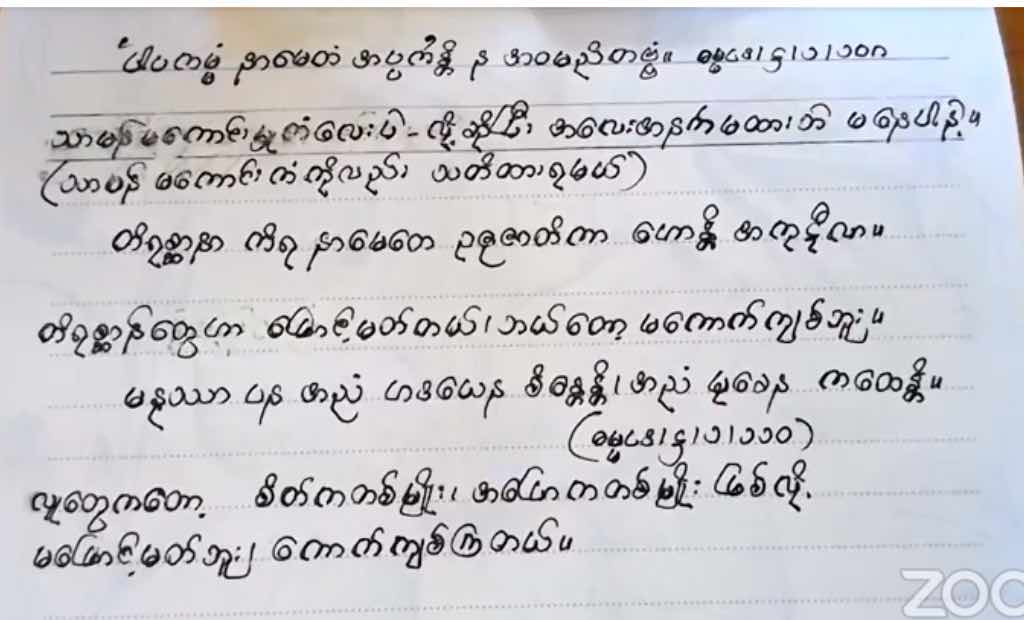 “ပါပကမ္မံ နာမေတံ အပ္ပကန္တိ န အဝမညိတဗ္ဗံ။ ဓမ္မဒ၊ဋ္ဌ၊၁၊၁၀၈
သာမန် မကောင်းမှုကံလေးပဲ - လို့ ဆိုပြီး အလေးအနက်မထားဘဲ မနေပါနဲ့။
(သာမန် မကောင်းကံကိုလည်း သတိထားရမယ်)
တိရစ္ဆာနာ ကိရ နာမေတေ ဥဇုဇာတိကာ ဟောန္တိ အကုဋိလာ။
တိရစ္ဆာန်တွေဟာ ဖြောင့်မတ်တယ်၊ ဘယ်တော့ မကောက်ကျစ်ဘူး။
မနုဿာ ပန အညံ ဟဒယေန စိန္တေန္တိ၊ အညံ မုခေန ကထေန္တိ။
(ဓမ္မဒ၊ဋ္ဌ၊၁၊၁၁၀)
လူတွေကတော့ စိတ်ကတစ်မျိုး၊ အပြောကတစ်မျိုး ဖြစ်လို့
မဖြောင့်မတ်ဘူး၊ ကောက်ကျစ်ကြတယ်။
ZOO